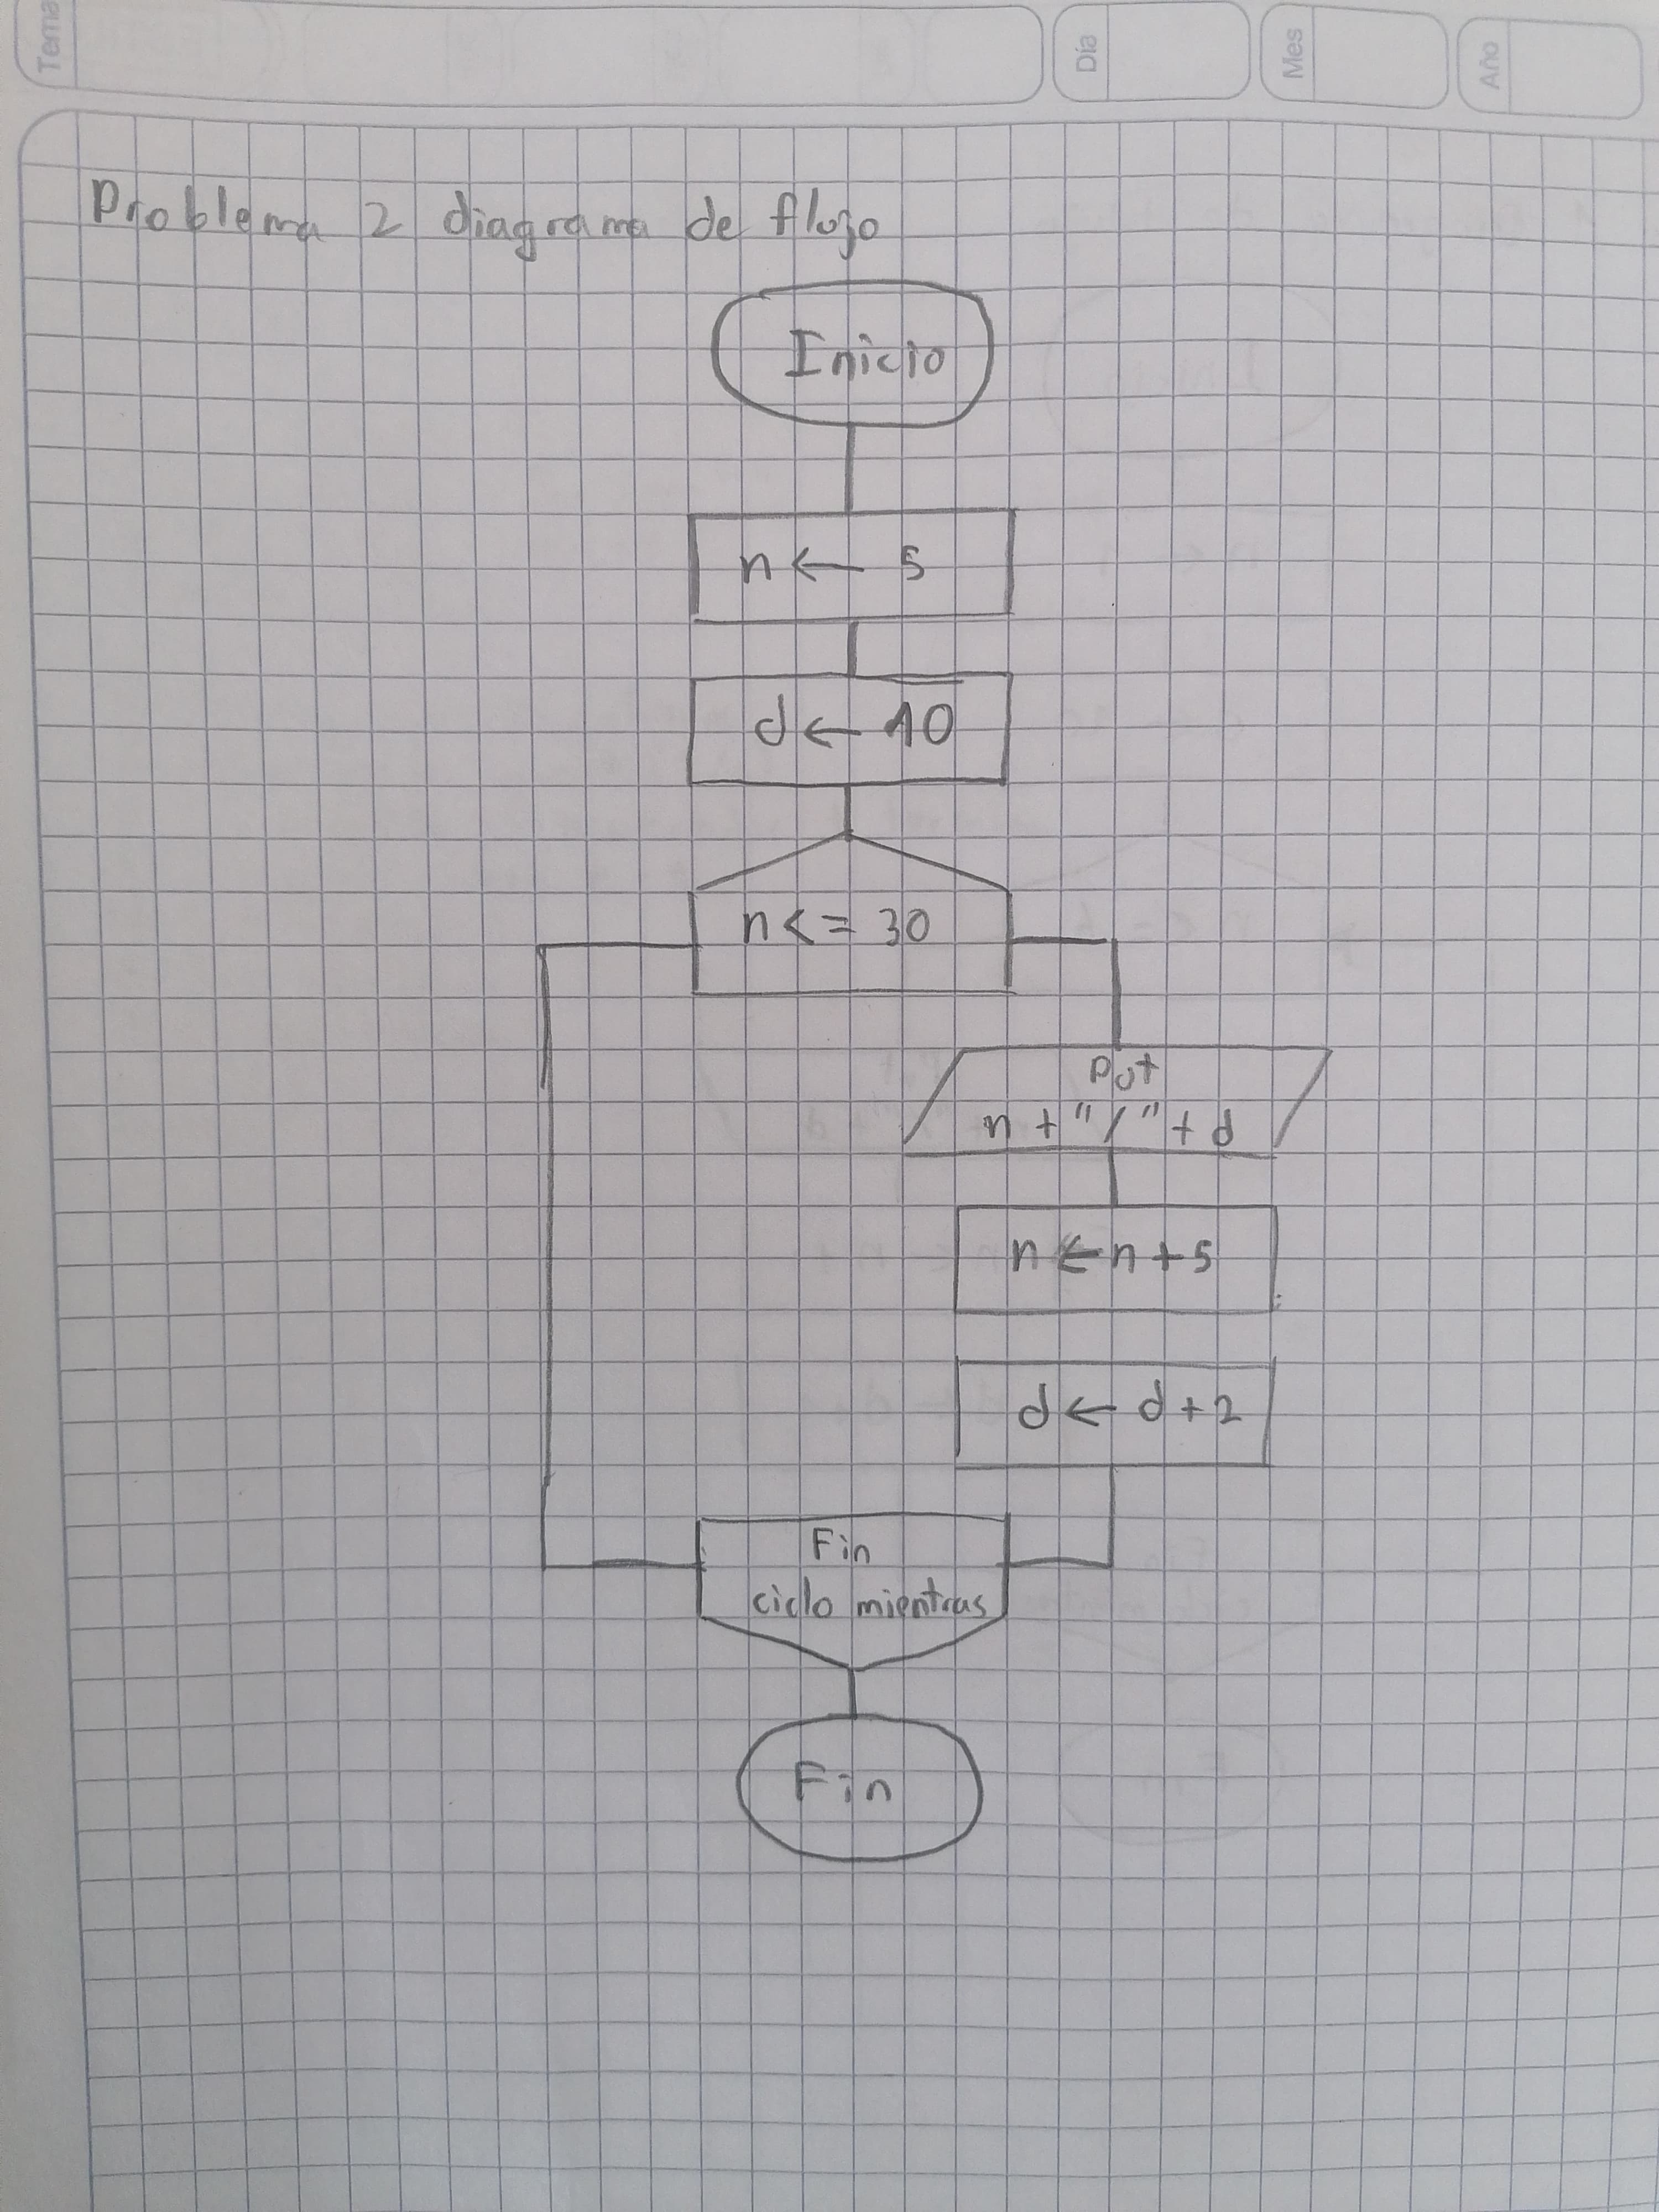 Tema
Día
Mes
Año
Problema 2 diagrama de flujo
Inicio
n ← 5
d ← 10
n <= 30
Put
n + "/" + d
n ← n + 5
d ← d + 2
Fin
ciclo mientras
Fin